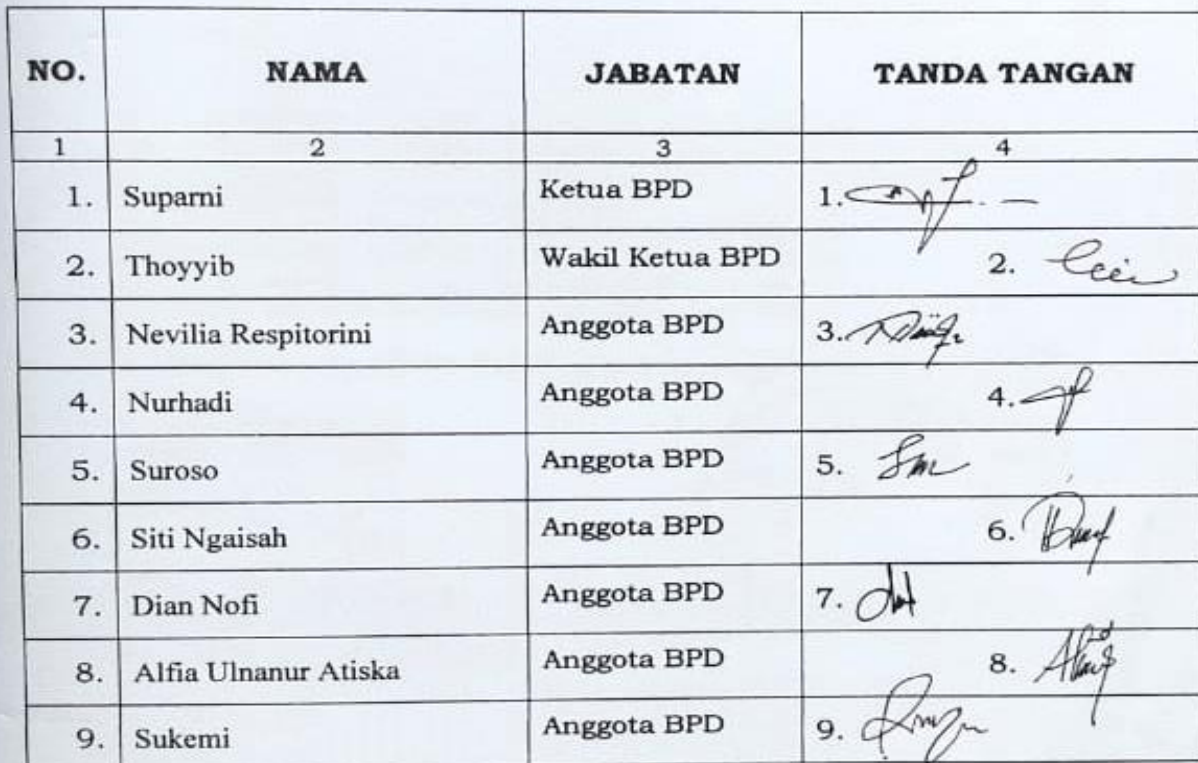 NO. NAMA JABATAN TANDA TANGAN
1 2 3 4
1. Suparni Ketua BPD 1.
2. Thoyyib Wakil Ketua BPD 2.
3. Nevilia Respitorini Anggota BPD 3.
4. Nurhadi Anggota BPD 4.
5. Suroso Anggota BPD 5.
6. Siti Ngaisah Anggota BPD 6.
7. Dian Nofi Anggota BPD 7.
8. Alfia Ulnanur Atiska Anggota BPD 8.
9. Sukemi Anggota BPD 9.